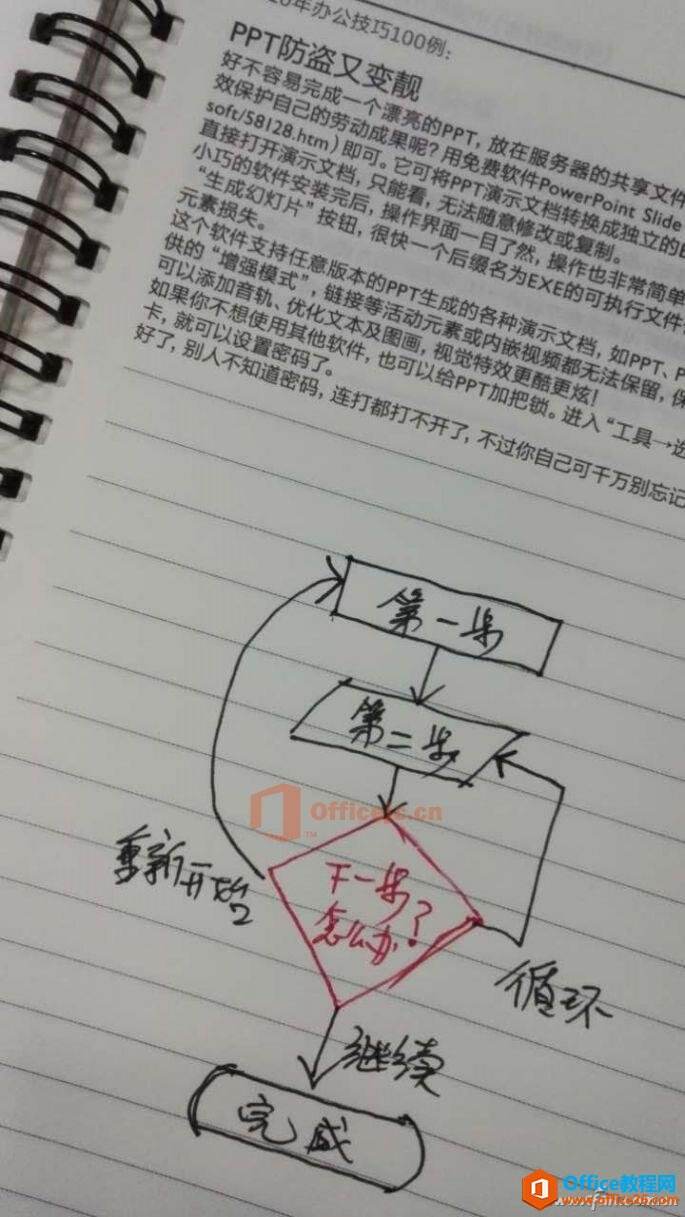 10年办公技巧100例：
PPT防盗又变靓
好不容易完成一个漂亮的PPT，放在服务器的共享文件
效保护自己的劳动成果呢？用免费软件PowerPoint Slide
soft/58128.htm）即可。它可将PPT演示文档转换成独立的E
直接打开演示文档，只能看，无法随意修改或复制。
小巧的软件安装完后，操作界面一目了然，操作也非常简单
“生成幻灯片”按钮，很快一个后缀名为EXE的可执行文件
元素损失。
这个软件支持任意版本的PPT生成的各种演示文档，如PPT、P
供的“增强模式”，链接等活动元素或内嵌视频都无法保留，保
可以添加音轨、优化文本及图画，视觉特效更酷更炫！
如果你不想使用其他软件，也可以给PPT加把锁。进入“工具→选
卡，就可以设置密码了。
好了，别人不知道密码，连打都打不开了，不过你自己可千万别忘记
第一步
第二步
Officezs.cn
TM
重新开始
下一步
怎么办？
循环
继续
完成
Office教程网